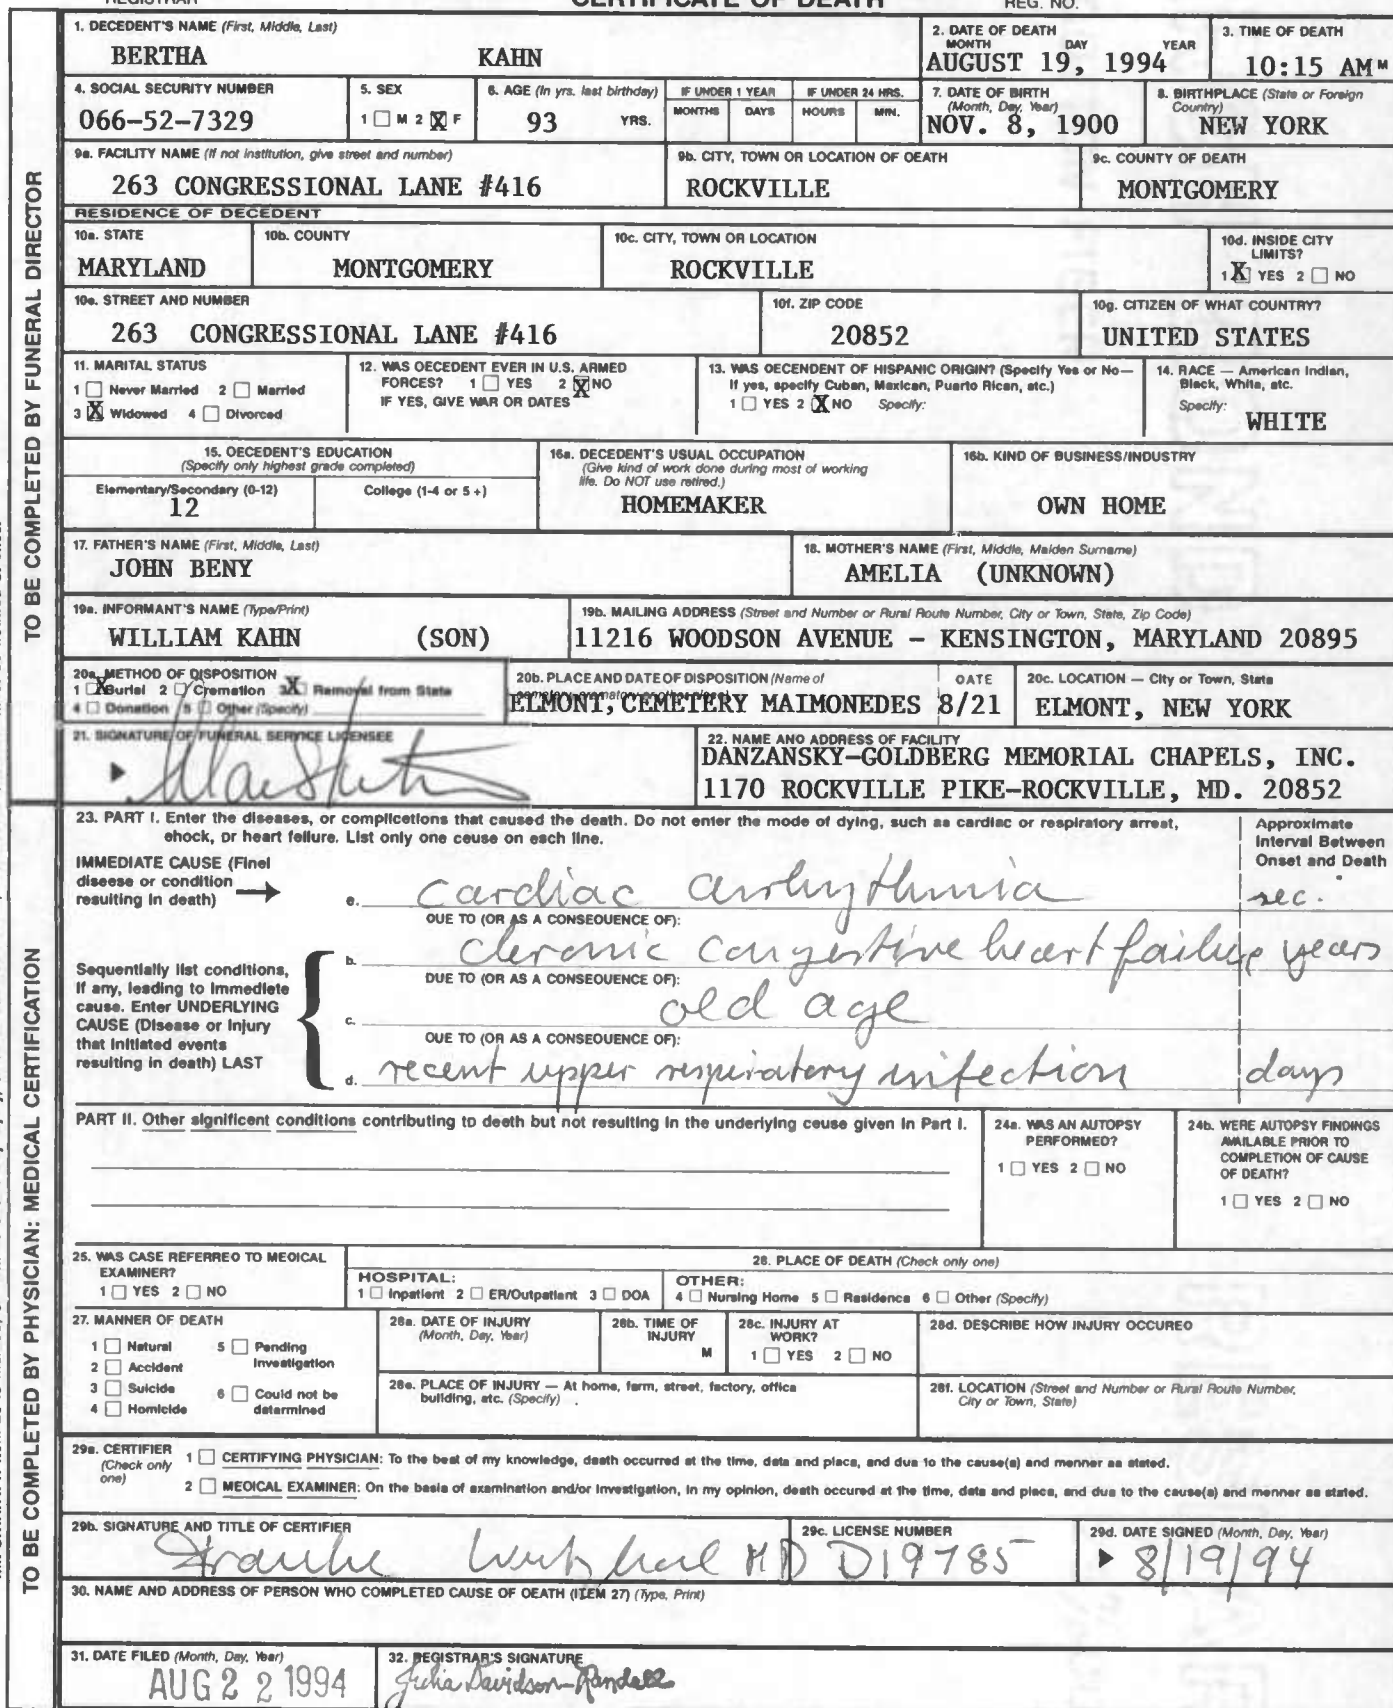 REGISTRAR
CERTIFICATE OF DEATH
REG. NO.
TO BE COMPLETED BY FUNERAL DIRECTOR
1. DECEDENT'S NAME (First, Middle, Last)
BERTHA KAHN
2. DATE OF DEATH
MONTH DAY YEAR
AUGUST 19, 1994
3. TIME OF DEATH
10:15 AM M
4. SOCIAL SECURITY NUMBER
066-52-7329
5. SEX
1 ☐ M 2 ☒ F
6. AGE (In yrs. last birthday)
93 YRS.
IF UNDER 1 YEAR
MONTHS DAYS
IF UNDER 24 HRS.
HOURS MIN.
7. DATE OF BIRTH
(Month, Day, Year)
NOV. 8, 1900
8. BIRTHPLACE (State or Foreign
Country)
NEW YORK
9a. FACILITY NAME (If not institution, give street and number)
263 CONGRESSIONAL LANE #416
9b. CITY, TOWN OR LOCATION OF DEATH
ROCKVILLE
9c. COUNTY OF DEATH
MONTGOMERY
RESIDENCE OF DECEDENT
10a. STATE
MARYLAND
10b. COUNTY
MONTGOMERY
10c. CITY, TOWN OR LOCATION
ROCKVILLE
10d. INSIDE CITY
LIMITS?
1 ☒ YES 2 ☐ NO
10e. STREET AND NUMBER
263 CONGRESSIONAL LANE #416
10f. ZIP CODE
20852
10g. CITIZEN OF WHAT COUNTRY?
UNITED STATES
11. MARITAL STATUS
1 ☐ Never Married 2 ☐ Married
3 ☒ Widowed 4 ☐ Divorced
12. WAS DECEDENT EVER IN U.S. ARMED
FORCES? 1 ☐ YES 2 ☒ NO
IF YES, GIVE WAR OR DATES
13. WAS DECENDENT OF HISPANIC ORIGIN? (Specify Yes or No—
If yes, specify Cuban, Mexican, Puerto Rican, etc.)
1 ☐ YES 2 ☒ NO Specify:
14. RACE — American Indian,
Black, White, etc.
Specify:
WHITE
15. DECEDENT'S EDUCATION
(Specify only highest grade completed)
Elementary/Secondary (0-12)
12
College (1-4 or 5 +)
16a. DECEDENT'S USUAL OCCUPATION
(Give kind of work done during most of working
life. Do NOT use retired.)
HOMEMAKER
16b. KIND OF BUSINESS/INDUSTRY
OWN HOME
17. FATHER'S NAME (First, Middle, Last)
JOHN BENY
18. MOTHER'S NAME (First, Middle, Maiden Surname)
AMELIA (UNKNOWN)
19a. INFORMANT'S NAME (Type/Print)
WILLIAM KAHN (SON)
19b. MAILING ADDRESS (Street and Number or Rural Route Number, City or Town, State, Zip Code)
11216 WOODSON AVENUE - KENSINGTON, MARYLAND 20895
20a. METHOD OF DISPOSITION
1 ☒ Burial 2 ☐ Cremation 3 ☒ Removal from State
4 ☐ Donation 5 ☐ Other (Specify)
20b. PLACE AND DATE OF DISPOSITION (Name of
cemetery, crematory or other place)
DATE
ELMONT, CEMETERY MAIMONEDES 8/21
20c. LOCATION — City or Town, State
ELMONT, NEW YORK
21. SIGNATURE OF FUNERAL SERVICE LICENSEE
22. NAME AND ADDRESS OF FACILITY
DANZANSKY-GOLDBERG MEMORIAL CHAPELS, INC.
1170 ROCKVILLE PIKE-ROCKVILLE, MD. 20852
TO BE COMPLETED BY PHYSICIAN: MEDICAL CERTIFICATION
23. PART I. Enter the diseases, or complications that caused the death. Do not enter the mode of dying, such as cardiac or respiratory arrest,
shock, or heart failure. List only one cause on each line.
Approximate
Interval Between
Onset and Death
IMMEDIATE CAUSE (Final
disease or condition
resulting in death)
a. cardiac arrhythmia sec.
DUE TO (OR AS A CONSEQUENCE OF):
b. chronic congestive heart failure years
Sequentially list conditions,
if any, leading to immediate
cause. Enter UNDERLYING
CAUSE (Disease or injury
that initiated events
resulting in death) LAST
DUE TO (OR AS A CONSEQUENCE OF):
c. old age
DUE TO (OR AS A CONSEQUENCE OF):
d. recent upper respiratory infection days
PART II. Other significant conditions contributing to death but not resulting in the underlying cause given in Part I.
24a. WAS AN AUTOPSY
PERFORMED?
1 ☐ YES 2 ☐ NO
24b. WERE AUTOPSY FINDINGS
AVAILABLE PRIOR TO
COMPLETION OF CAUSE
OF DEATH?
1 ☐ YES 2 ☐ NO
25. WAS CASE REFERRED TO MEDICAL
EXAMINER?
1 ☐ YES 2 ☐ NO
26. PLACE OF DEATH (Check only one)
HOSPITAL:
1 ☐ Inpatient 2 ☐ ER/Outpatient 3 ☐ DOA
OTHER:
4 ☐ Nursing Home 5 ☐ Residence 6 ☐ Other (Specify)
27. MANNER OF DEATH
1 ☐ Natural 5 ☐ Pending
Investigation
2 ☐ Accident
3 ☐ Suicide 6 ☐ Could not be
determined
4 ☐ Homicide
28a. DATE OF INJURY
(Month, Day, Year)
28b. TIME OF
INJURY
M
28c. INJURY AT
WORK?
1 ☐ YES 2 ☐ NO
28d. DESCRIBE HOW INJURY OCCURED
28e. PLACE OF INJURY — At home, farm, street, factory, office
building, etc. (Specify)
28f. LOCATION (Street and Number or Rural Route Number,
City or Town, State)
29a. CERTIFIER
(Check only
one)
1 ☐ CERTIFYING PHYSICIAN: To the best of my knowledge, death occurred at the time, date and place, and due to the cause(s) and manner as stated.
2 ☐ MEDICAL EXAMINER: On the basis of examination and/or investigation, in my opinion, death occured at the time, date and place, and due to the cause(s) and manner as stated.
29b. SIGNATURE AND TITLE OF CERTIFIER
MD
29c. LICENSE NUMBER
D19785
29d. DATE SIGNED (Month, Day, Year)
8/19/94
30. NAME AND ADDRESS OF PERSON WHO COMPLETED CAUSE OF DEATH (ITEM 27) (Type, Print)
31. DATE FILED (Month, Day, Year)
AUG 22 1994
32. REGISTRAR'S SIGNATURE
Julia Davidson-Randell